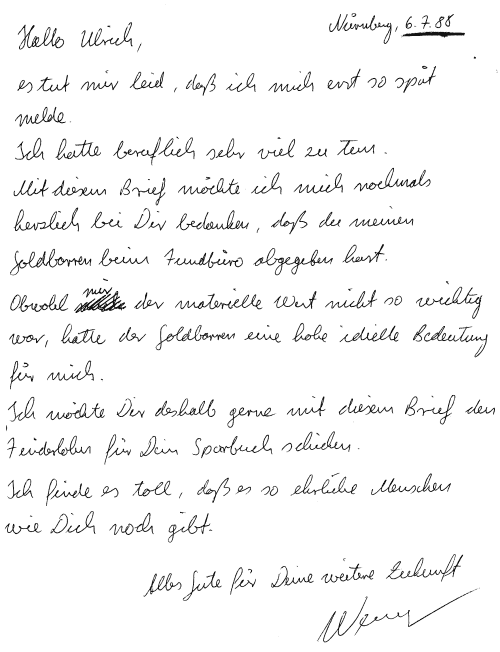 Nürnberg, 6.7.88
Hallo Ulrich,
es tut mir leid, daß ich mich erst so spät
melde.
Ich hatte beruflich sehr viel zu tun.
Mit diesem Brief möchte ich mich nochmals
herzlich bei Dir bedanken, daß du meinen
Goldbarren beim Fundbüro abgegeben hast.
Obwohl mir der materielle Wert nicht so wichtig
war, hatte der Goldbarren eine hohe idielle Bedeutung
für mich.
Ich möchte Dir deshalb gerne mit diesem Brief den
Finderlohn für Dein Sparbuch schicken.
Ich finde es toll, daß es so ehrliche Menschen
wie Dich noch gibt.
Alles Gute für Deine weitere Zukunft